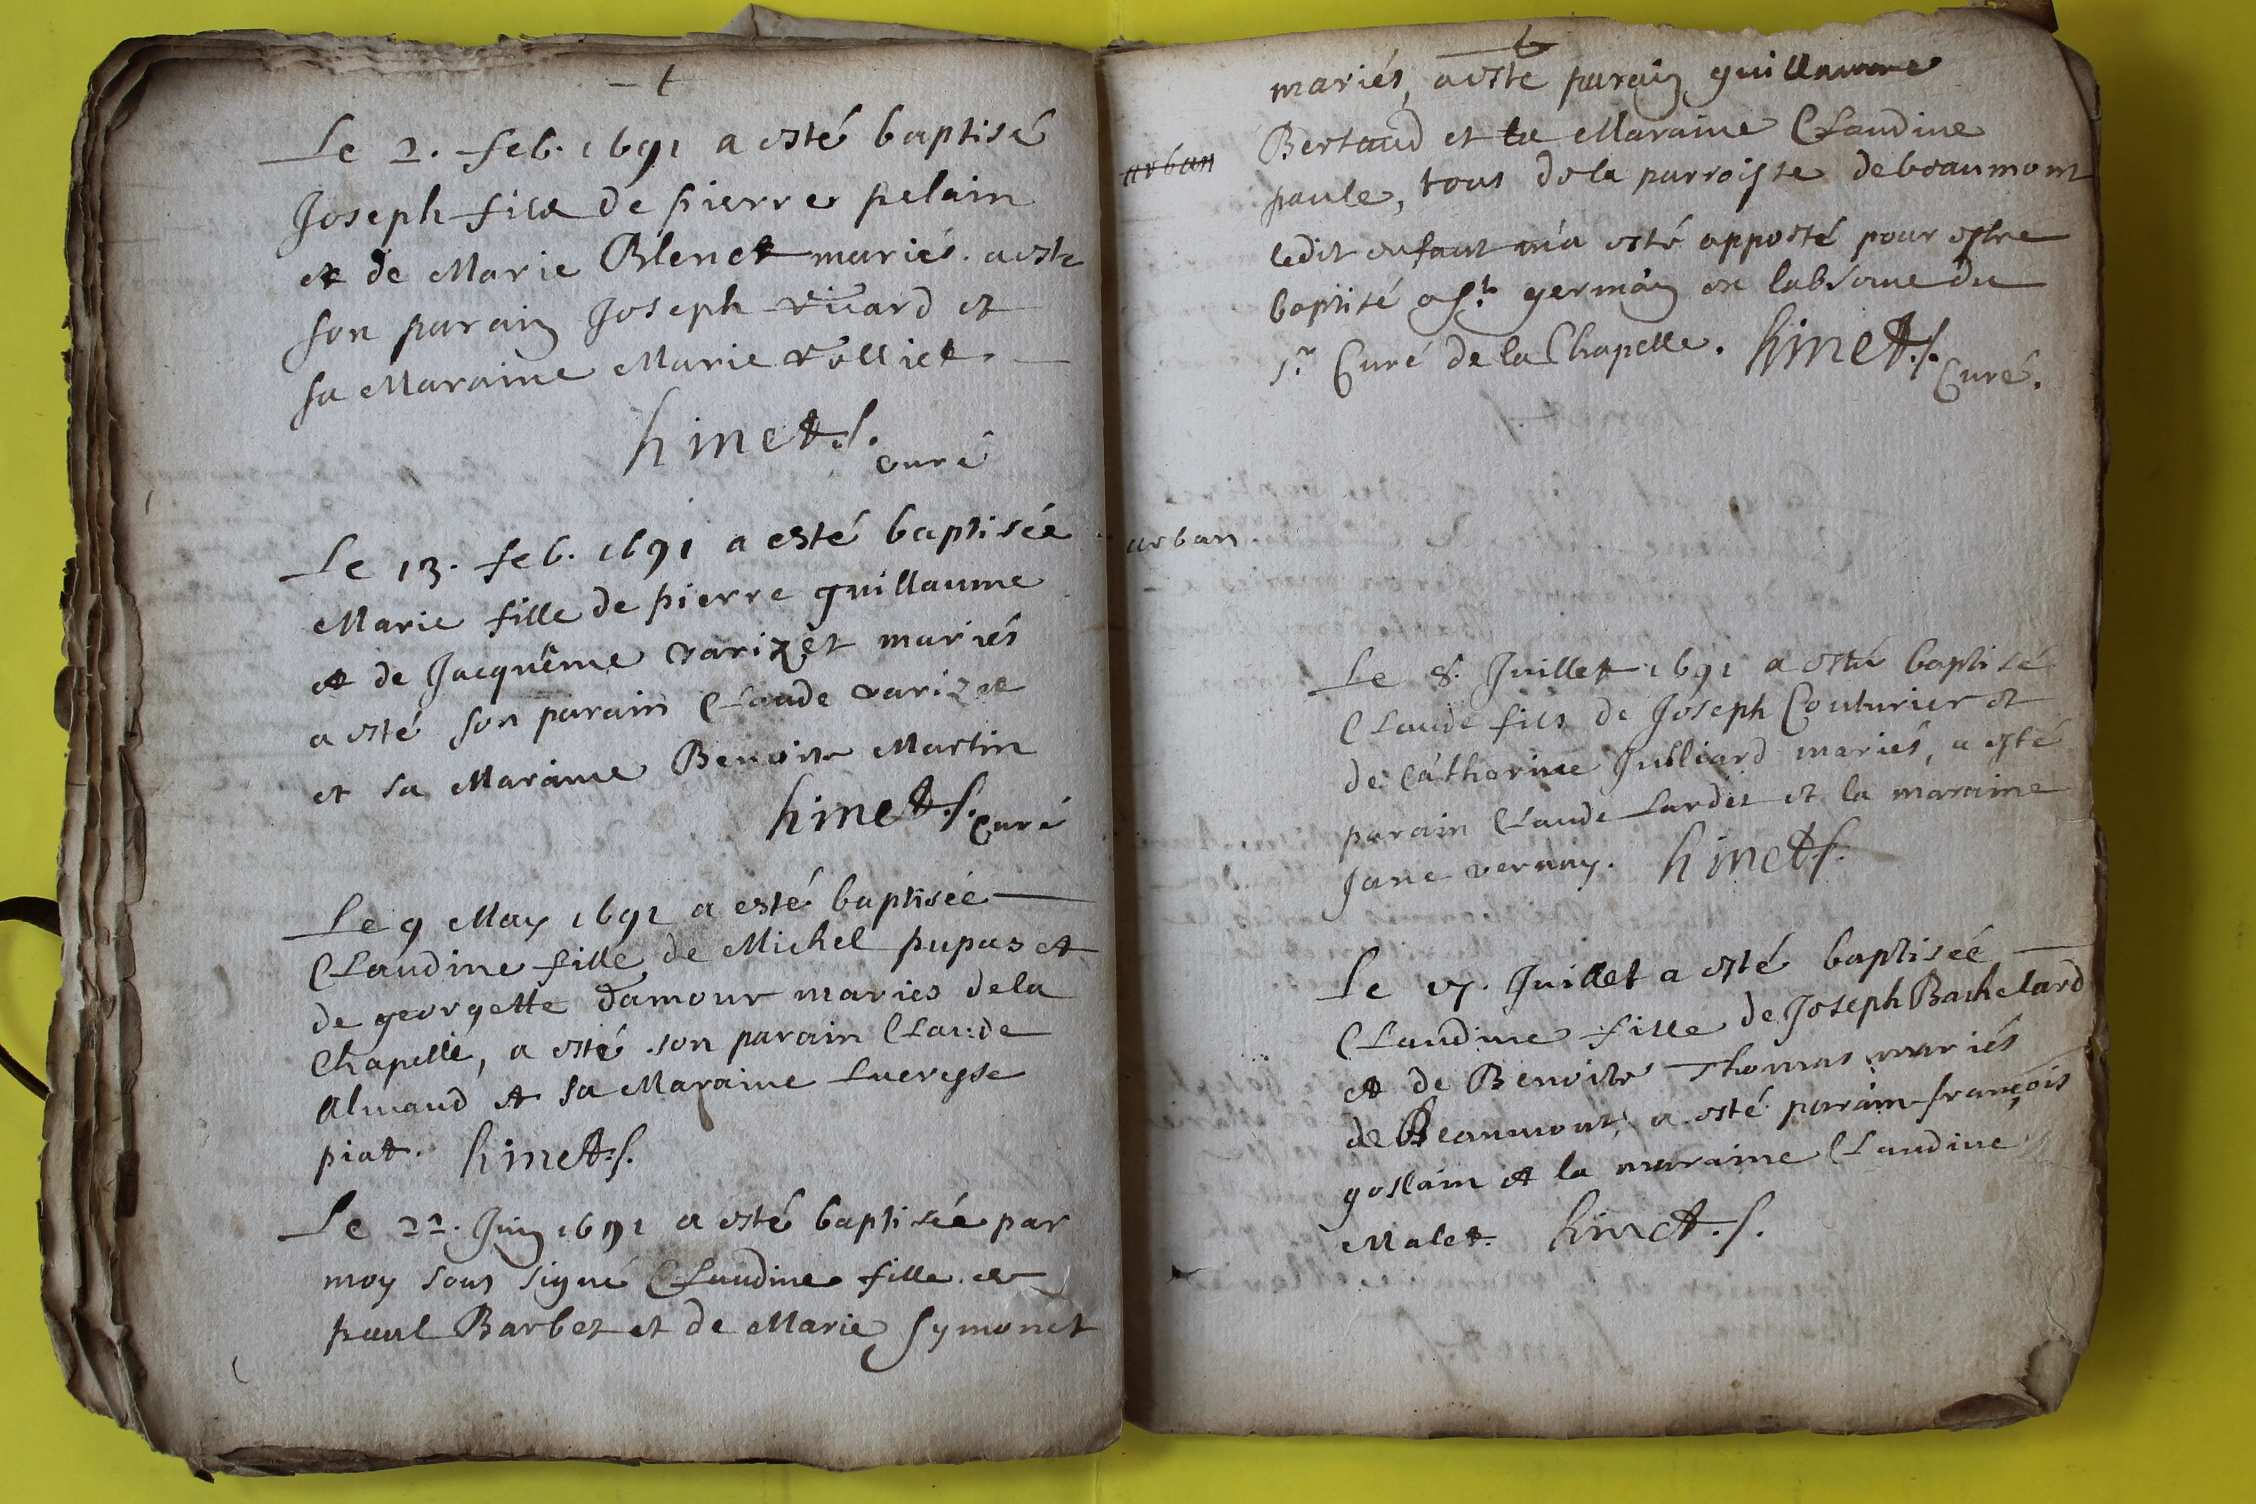 Le 2. feb. 1691 a esté baptisé
Joseph filx de pierre pelain
et de Marie Blenet mariés. a esté
son parain Joseph ricard et
sa Maraine Marie volliet.
hinet.s.
curé
Le 13. feb. 1691 a esté baptisée
Marie fille de pierre guillaume
et de Jacquême varizet mariés
a esté son parain Claude varizet
et sa Maraine Benoiste Martin
hinet.s. Curé
Le 9 May 1691 a esté baptisée
Claudine fille de Michel pupas et
de georgette damour mariés dela
Chapelle, a esté son parain Claude
et sa Maraine Lucresse
piat. hinet.s.
Le 22. Juin 1691 a esté baptisée par
moy sous signé Claudine fille de
paul Barbet et de Marie Symonet
mariés, a esté parain guillaume
Bertaud et la Maraine Claudine
arban
paule, tous dela parroisse de beaumont
ledit enfant m'a esté apporté pour estre
baptisé a St. germain en labsence du
sr Curé de la Chapelle. hinet.s.
Curé.
arban
Le 8. Juillet 1691 a esté baptisé
Claude fils de Joseph Couturier et
de Catherine Julliard mariés, a esté
parain Claude Lardet et la maraine
Jane vernay. hinet.s.
Le 17. Juillet a esté baptisée
Claudine fille de Joseph Bachelard
et de Benoiste Thomas mariés
de Beaumont, a esté parain françois
goslain et la maraine Claudine
Malet. hinet.s.